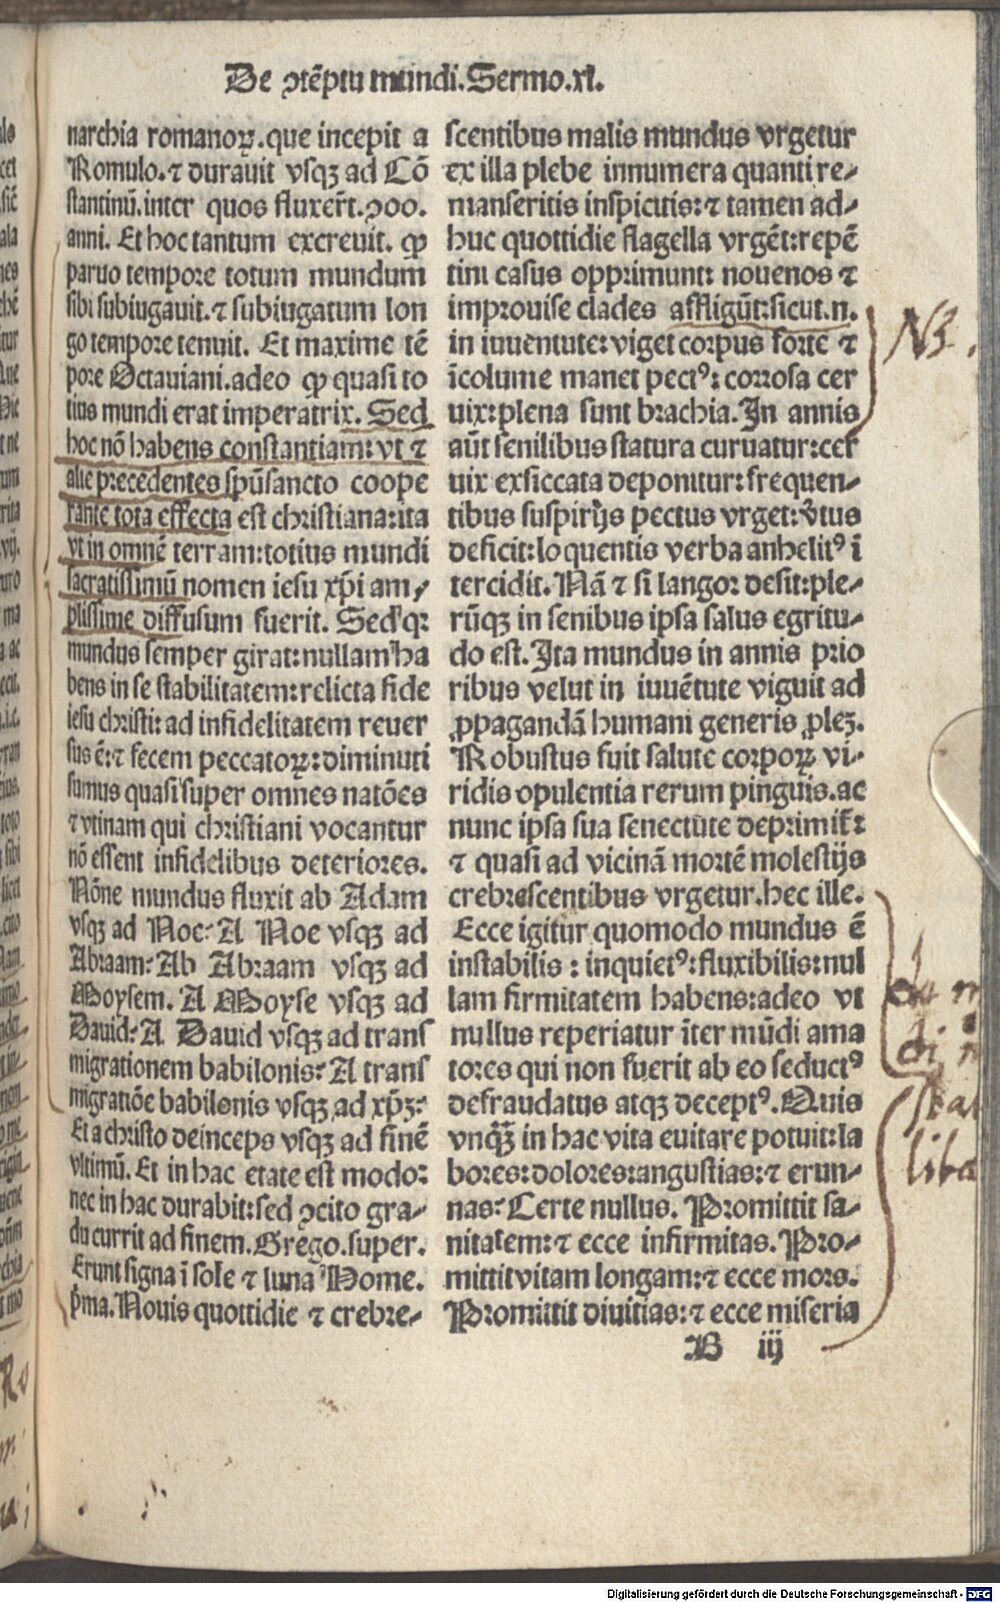 De ↄtēptu mundi. Sermo.xl.
narchia romanoꝝ.que incepit a
Romulo.⁊ durauit vsqꝫ ad Cō
stantinū.inter quos fluxer̄t.ↄoo.
anni. Et hoc tantum excreuit. ꝙ
paruo tempore totum mundum
sibi subiugauit.⁊ subiugatum lon
go tempore tenuit. Et maxime tē
pore Octauiani.adeo ꝙ quasi to
tius mundi erat imperatrix. Sed
hoc nō habens constantiam:vt ⁊
alie precedentes spūsancto coope
rante tota effecta est christiana:ita
vt in omnē terram:totius mundi
sacratissimū nomen iesu xp̄i am⸗
plissime diffusum fuerit. Sed qꝛ
mundus semper girat:nullam ha
bens in se stabilitatem:relicta fide
iesu christi:ad infidelitatem reuer
sus ē:⁊ fecem peccatoꝝ:diminuti
sumus quasi super omnes natōes
⁊ vtinam qui christiani vocantur
nō essent infidelibus deteriores.
Nōne mundus fluxit ab Adam
vsqꝫ ad Noe? A Noe vsqꝫ ad
Abraam? Ab Abraam vsqꝫ ad
Moysem. A Moyse vsqꝫ ad
Dauid? A Dauid vsqꝫ ad trans
migrationem babilonis? A trans
migratiōe babilonis vsqꝫ ad xp̄ꝫ?
Et a christo deinceps vsqꝫ ad finē
vltimū. Et in hac etate est modo:
nec in hac durabit:sed ↄcito gra⸗
du currit ad finem.Grego.super.
Erunt signa ī sole ⁊ luna Home.
p̄ma.Nouis quottidie ⁊ crebre⸗
scentibus malis mundus vrgetur
ex illa plebe innumera quanti re⸗
manseritis inspicitis:⁊ tamen ad⸗
huc quottidie flagella vrgēt:repē
tini casus opprimunt: nouenos ⁊
improuise clades affligūt:sicut.n.
in iuuentute:viget corpus forte ⁊
īcolume manet pectꝰ: corrosa cer
uix:plena sunt brachia.In annis
aūt senilibus statura curuatur:cer
uix exsiccata deponitur:frequen⸗
tibus suspirijs pectus vrget:v̄tus
deficit:loquentis verba anhelitꝰ ī
tercidit. Nā ⁊ si langor desit:ple⸗
rūqꝫ in senibus ipsa salus egritu⸗
do est. Ita mundus in annis prio
ribus velut in iuuētute viguit ad
ꝓpagandā humani generis ꝓleꝫ.
Robustus fuit salute corpoꝝ vi⸗
ridis opulentia rerum pinguis.ac
nunc ipsa sua senectute deprimit̄:
⁊ quasi ad vicinā mortē molestijs
crebrescentibus vrgetur.hec ille.
Ecce igitur quomodo mundus ē
instabilis : inquietꝰ:fluxibilis:nul
lam firmitatem habens:adeo vt
nullus reperiatur īter mūdi ama
tores qui non fuerit ab eo seductꝰ
defraudatus atqꝫ deceptꝰ.Quis
vnqꝫ̄ in hac vita euitare potuit:la
bores:dolores:angustias:⁊ erun⸗
nas? Certe nullus. Promittit sa⸗
nitatem:⁊ ecce infirmitas. Pro⸗
mittit vitam longam:⁊ ecce mors.
Promittit diuitias:⁊ ecce miseria
B iij
Digitalisierung gefördert durch die Deutsche Forschungsgemeinschaft - DFG